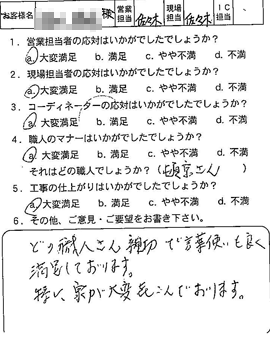 お客様名 様 営業担当 佐々木 現場担当 佐々木 IC担当
1. 営業担当者の応対はいかがでしたでしょうか?
a. 大変満足 b. 満足 c. やや不満 d. 不満
2. 現場担当者の応対はいかがでしたでしょうか?
a. 大変満足 b. 満足 c. やや不満 d. 不満
3. コーディネーターの応対はいかがでしたでしょうか?
a. 大変満足 b. 満足 c. やや不満 d. 不満
4. 職人のマナーはいかがでしたでしょうか?
a. 大変満足 b. 満足 c. やや不満 d. 不満
それはどの職人でしょうか?( さん )
5. 工事の仕上がりはいかがでしたでしょうか?
a. 大変満足 b. 満足 c. やや不満 d. 不満
6. その他、ご意見・ご要望をお書き下さい。
どの職人さん 親切で言葉使いも良く
満足しております。
特に、家が大変喜こんでおります。